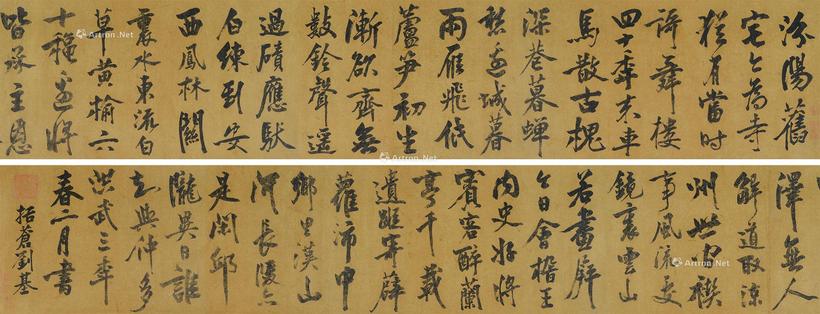 汾陽舊
宅今為寺
猶有當時
謌舞樓
四十年來車
馬散古槐
深巷暮蟬
愁邊城暮
雨雁飛低
蘆笋初生
漸欲齊無
數鈴聲遙
過磧應馱
白練到安
西鳳林關
裏水東流白
草黃榆六
十穐邊將
皆承主恩
澤無人
解道取涼
州世間禊
事風流處
鏡裏雲山
若畫屏
今日會稽王
內史好將
賓客醉蘭
亭千載
遺蹤寄薜
蘿沛中
鄉里漢山
河長陵亦
是閑邱
隴異日誰
知與仲多
洪武三年
春二月書
括蒼劉基
Artron.Net
Artron.Net
Artron.Net